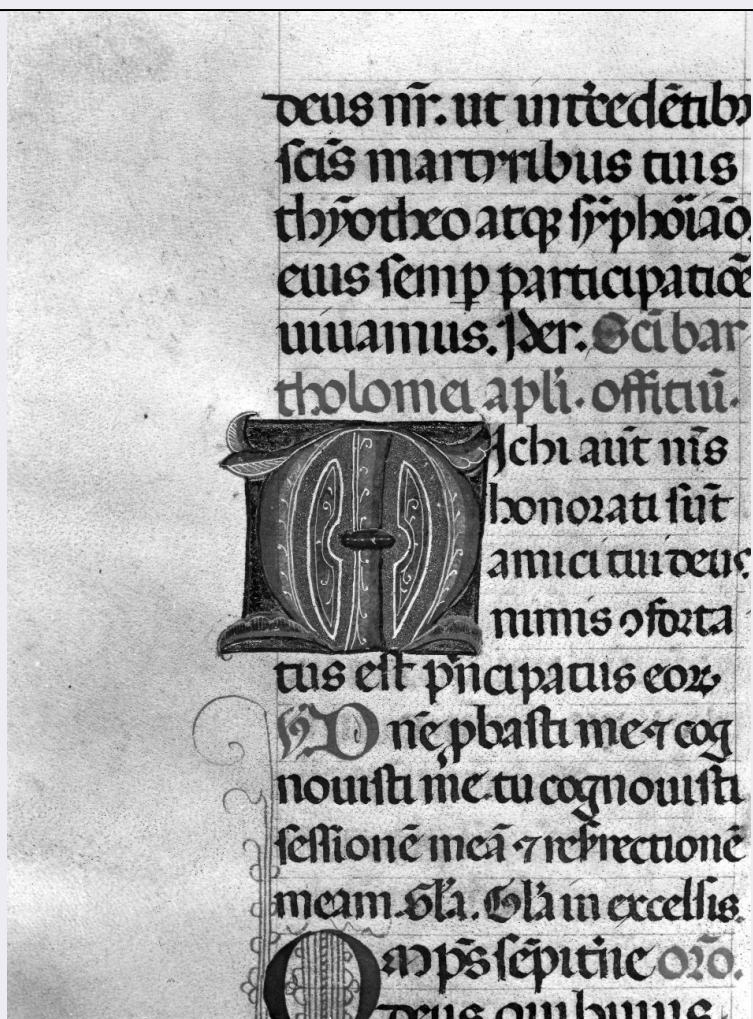 deus nr̄. ut int̄cedētib;
sc̄is martyribus tuis
thȳotheo atqꝫ sȳphōiāo.
eius semꝑ participatiōe
uiuamus. Per. Sc̄i bar
tholomei apl̄i. offitiū.
Michi aūt nīs
honorati sūt
amici tui deus
nimis ꝯforta
tus est p̄ncipatus eoꝝ
D nē ꝓbasti me ⁊ cog
nouisti me. tu cognouisti
sessionē meā ⁊ resr̄rectionē
meam. Gl̄a. Gl̄a in excelsis.
Om̄ps sēpit̄ne orō.
deus qui huius